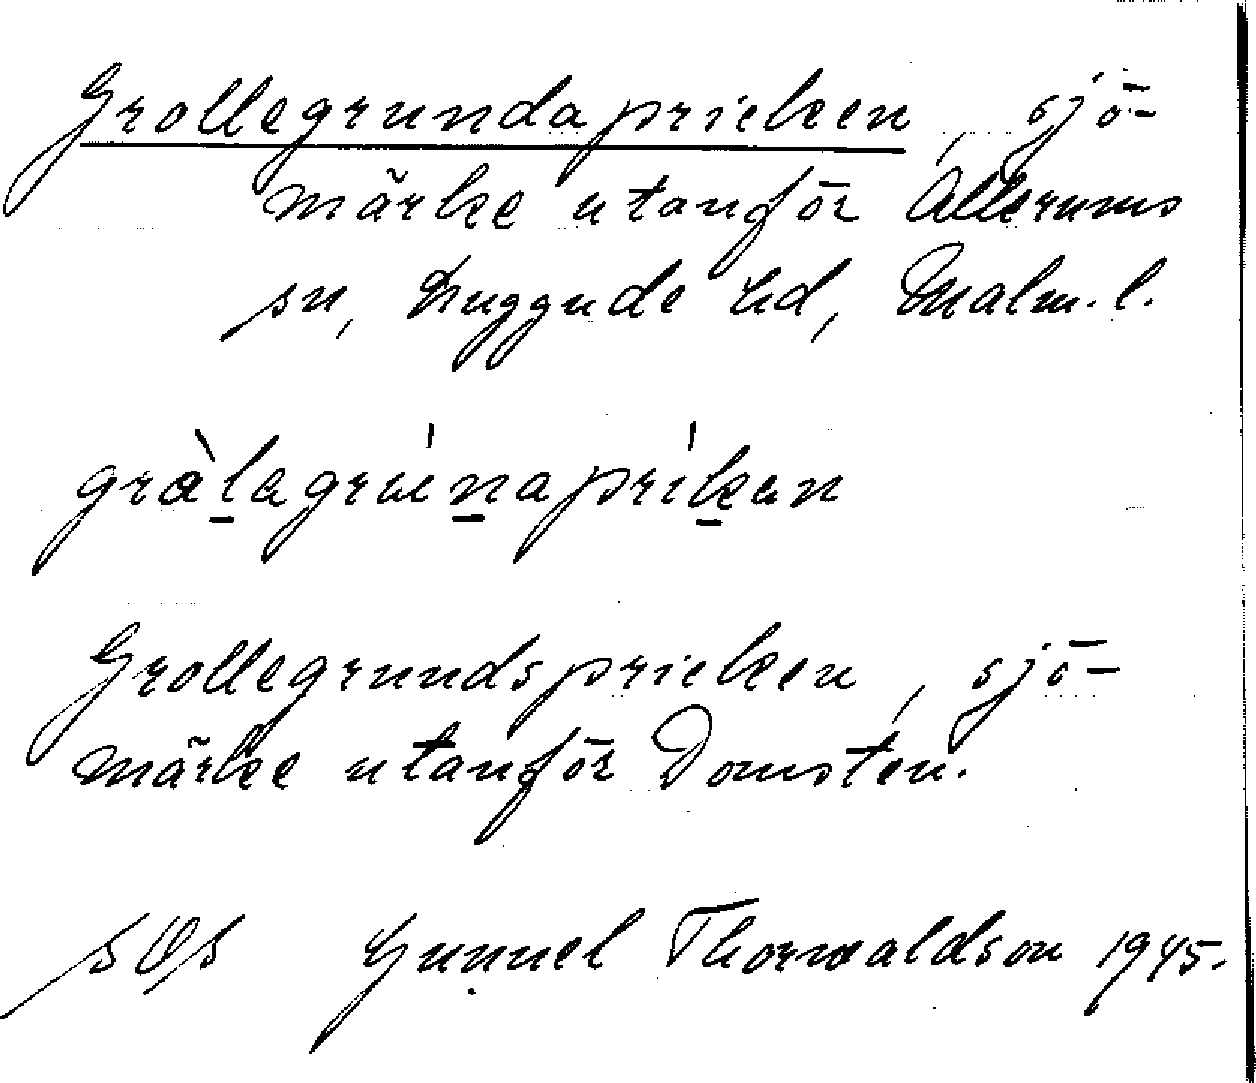 Grollegrundapricken, sjö-
märke utanför Allerums
sn, Luggude hd, Malm. l.
gràlagrúnapríkan
Grollegrundspricken, sjö-
märke utanför Domsten.
Gunnel Thorwaldson 1945.